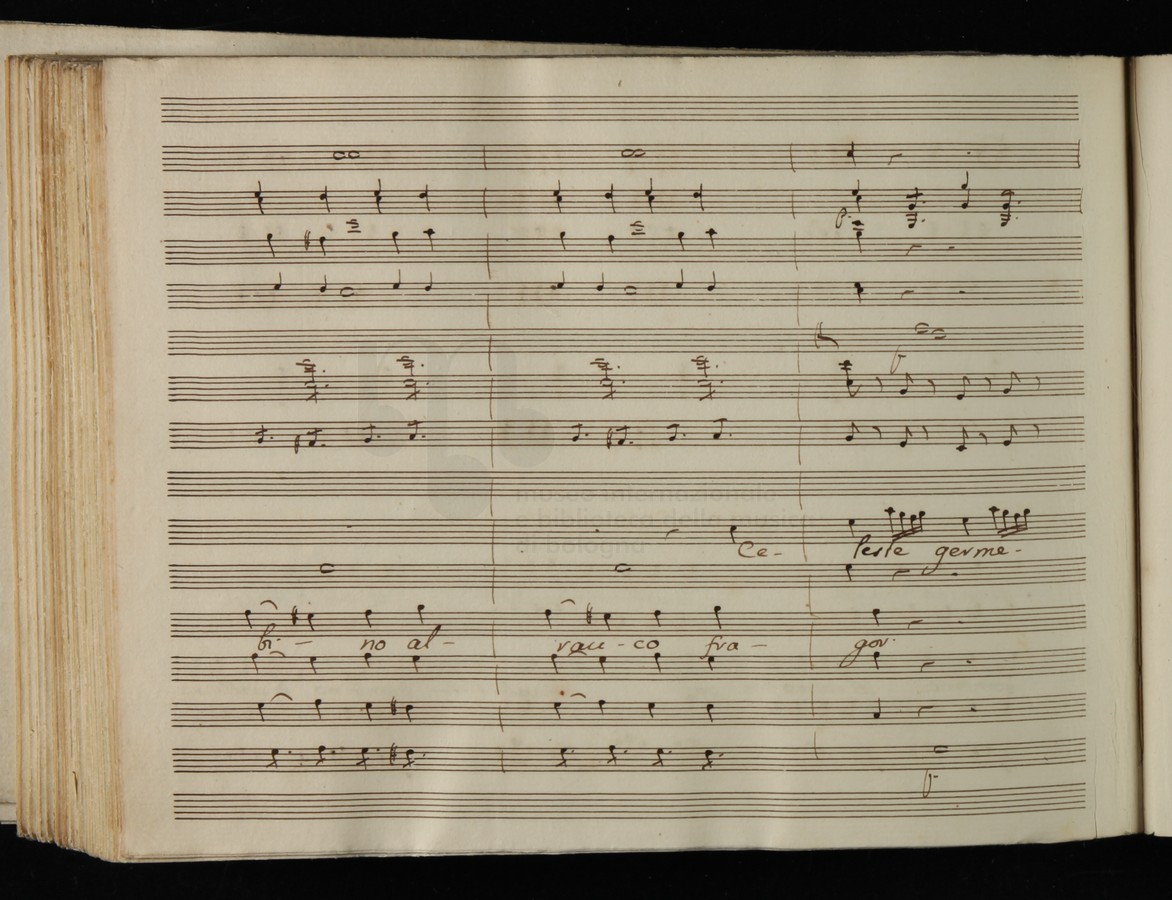 museo internazionale
e biblioteca della musica
di bologna
Ce- leste germe-
bi- no al- rau-co fra- gor